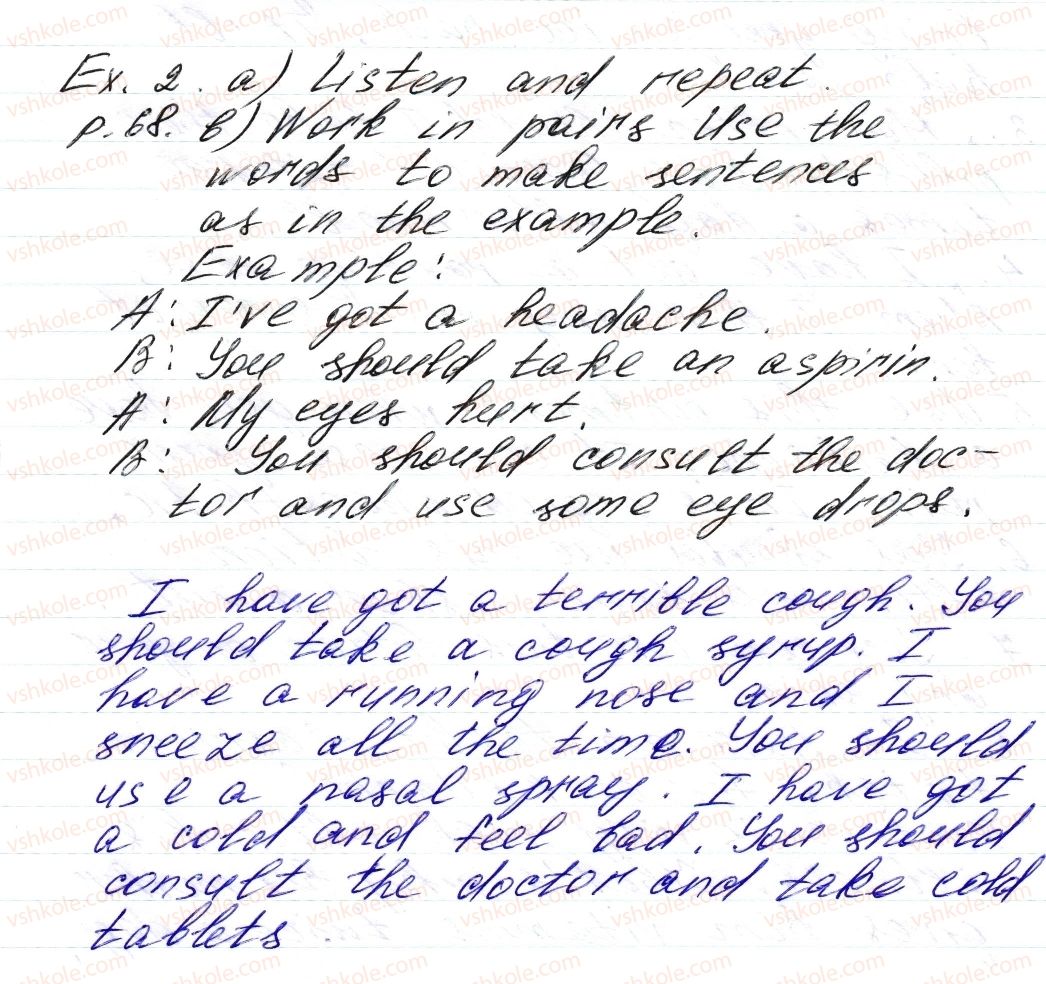 Ex. 2. a) Listen and repeat.
p. 68. b) Work in pairs Use the
words to make sentences
as in the example.
Example:
A: I've got a headache.
B: You should take an aspirin.
A: My eyes hurt.
B: You should consult the doc-
tor and use some eye drops.
I have got a terrible cough. You
should take a cough syrup. I
have a running nose and I
sneeze all the time. You should
use a nasal spray. I have got
a cold and feel bad. You should
consult the doctor and take cold
tablets.